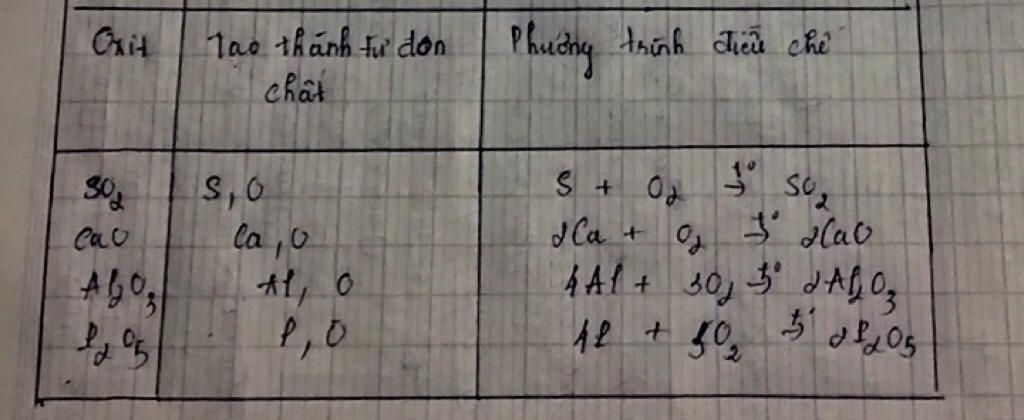 Oxit Tạo thành từ đơn Phương trình điều chế
chất
SO₂ S, O S + O₂ →t° SO₂
CaO Ca, O 2Ca + O₂ →t° 2CaO
Al₂O₃ Al, O 4Al + 3O₂ →t° 2Al₂O₃
P₂O₅ P, O 4P + 5O₂ →t° 2P₂O₅